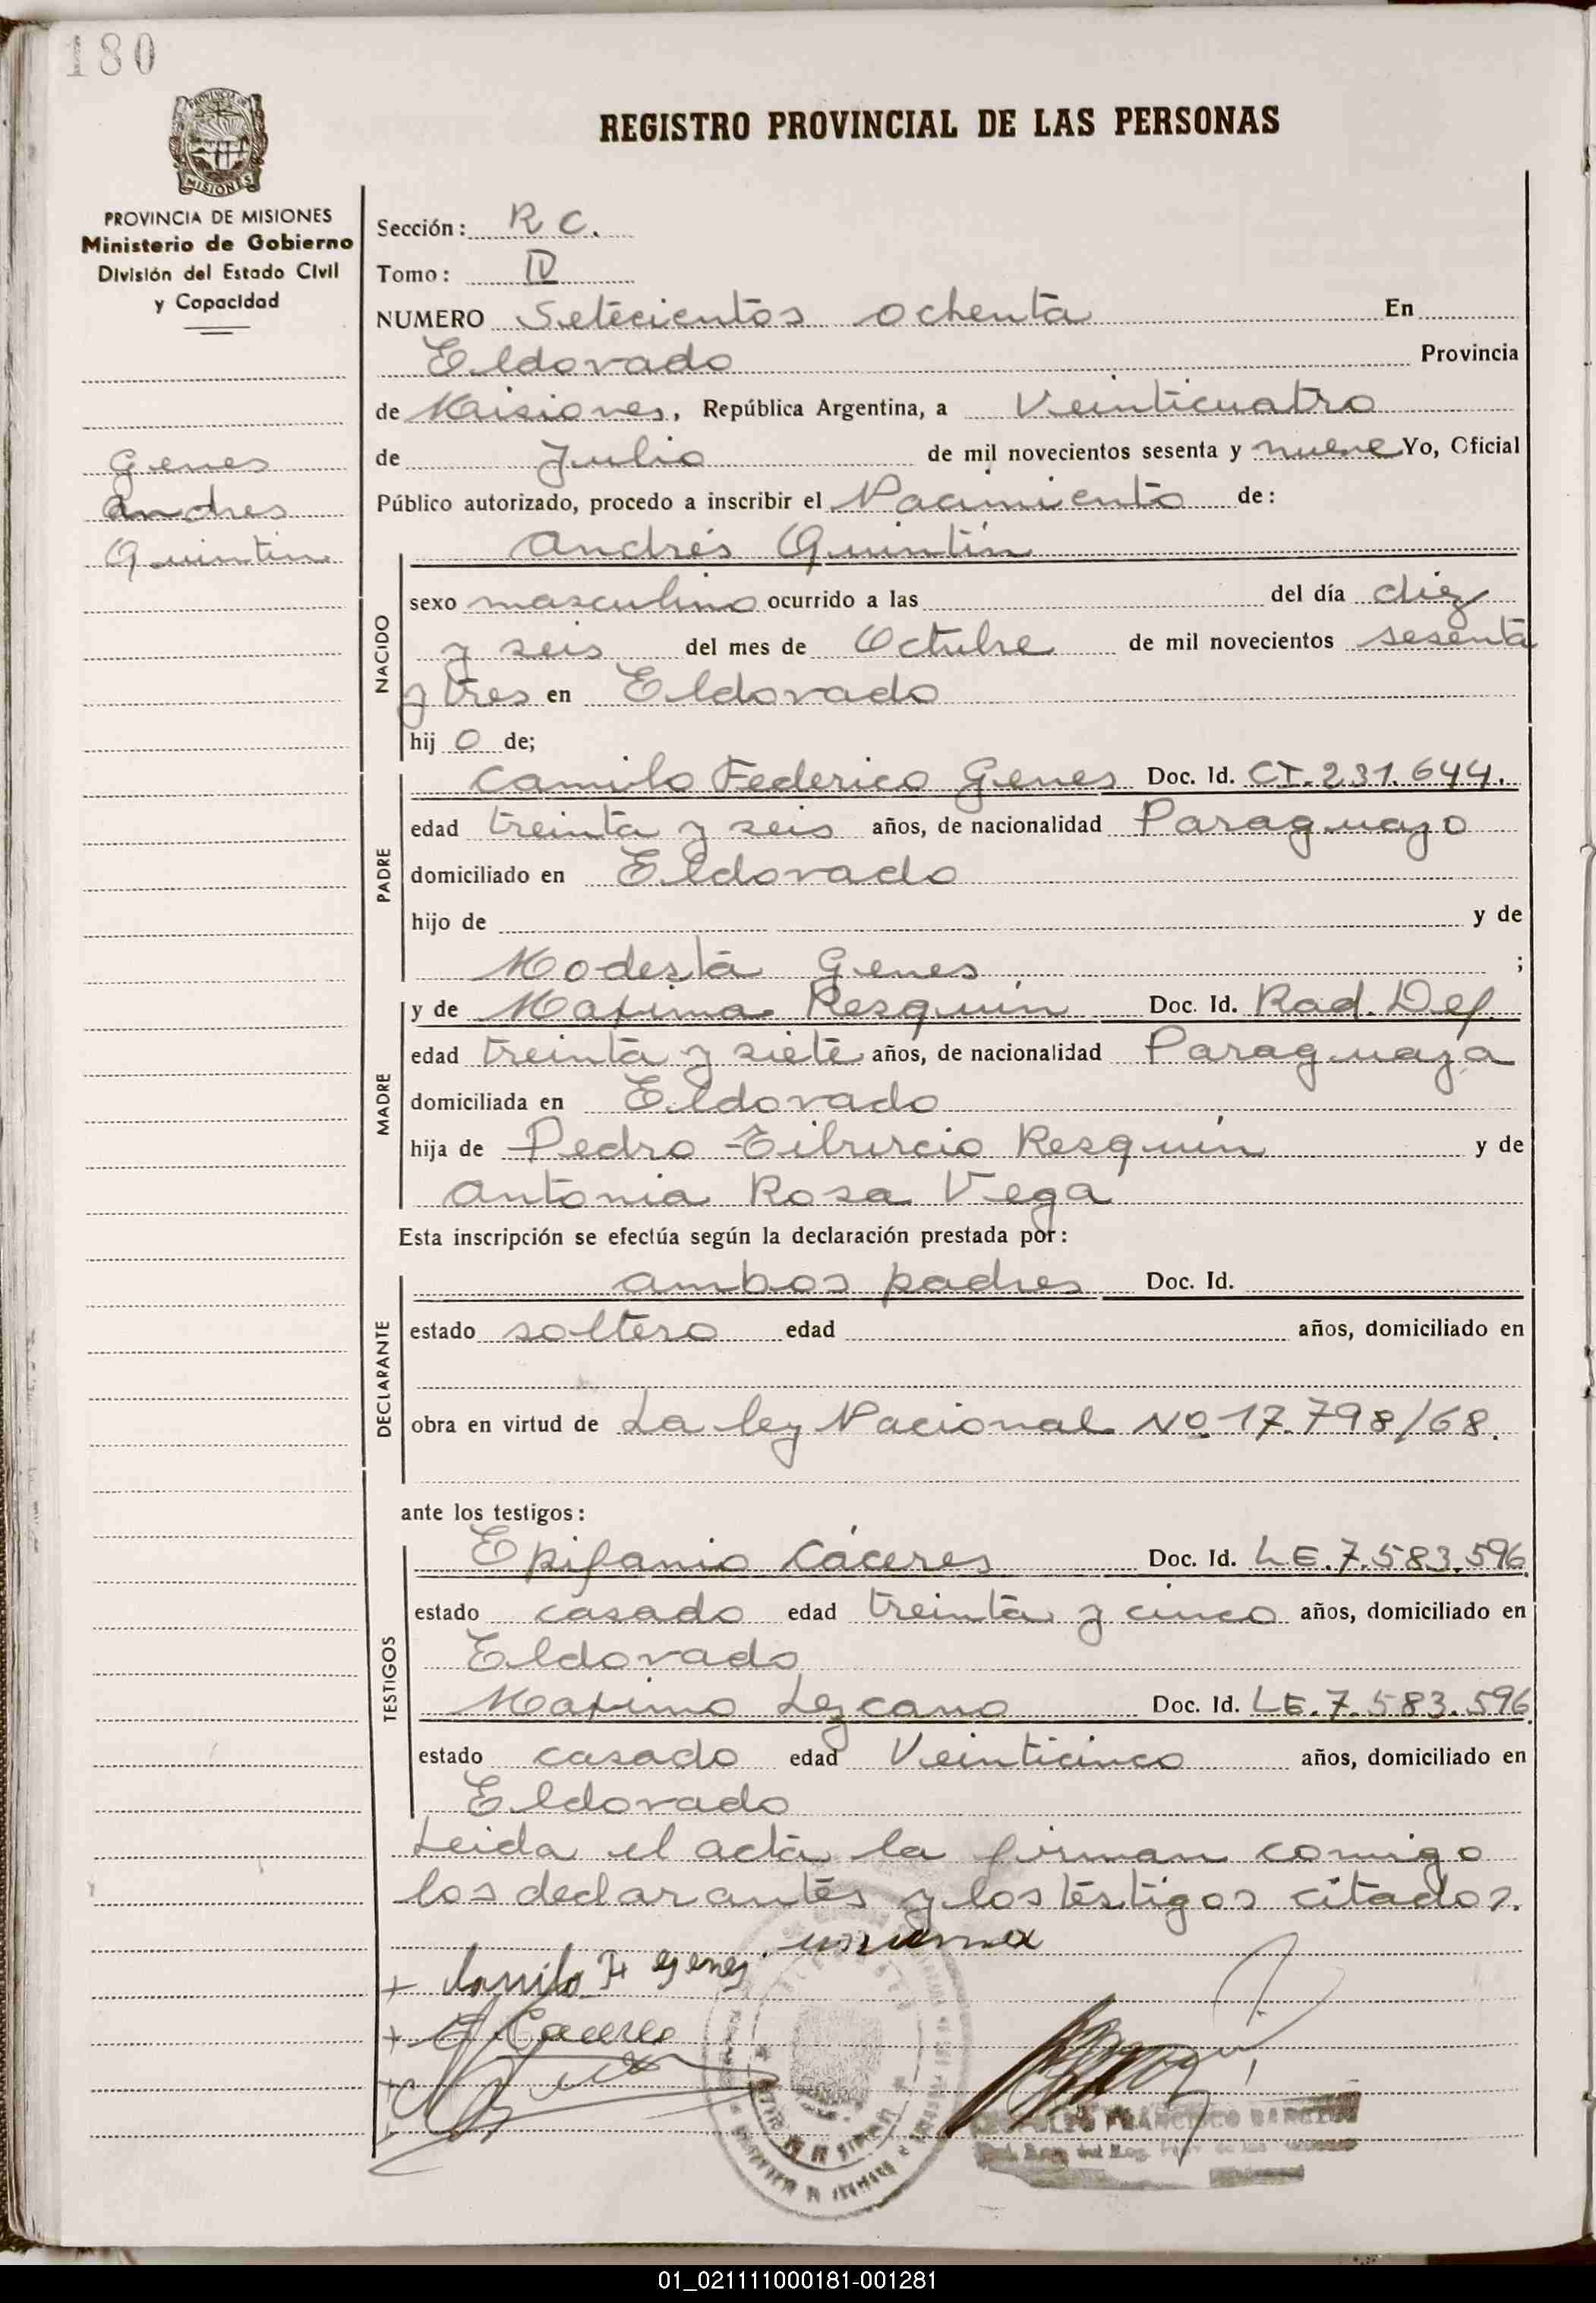 180
PROVINCIA DE
MISIONES
REGISTRO PROVINCIAL DE LAS PERSONAS
PROVINCIA DE MISIONES
Ministerio de Gobierno
División del Estado Civil
y Capacidad
Genes
Andres
Quintin
Sección: R C.
Tomo: IV
NUMERO Setecientos ochenta En
Eldorado Provincia
de Misiones, República Argentina, a Veinticuatro
de Julio de mil novecientos sesenta y nueve Yo, Oficial
Público autorizado, procedo a inscribir el Nacimiento de:
Andrés Quintín
NACIDO
sexo masculino ocurrido a las del día diez
y seis del mes de Octubre de mil novecientos sesenta
y tres en Eldorado
hij o de;
PADRE
Camilo Federico Genes Doc. Id. CI. 231.644.
edad treinta y seis años, de nacionalidad Paraguayo
domiciliado en Eldorado
hijo de y de
Modesta Genes ;
MADRE
y de Maxima Resquín Doc. Id. Rad. Def.
edad treinta y siete años, de nacionalidad Paraguaya
domiciliada en Eldorado
hija de Pedro Tiburcio Resquín y de
Antonia Rosa Vega
Esta inscripción se efectúa según la declaración prestada por:
DECLARANTE
ambos padres Doc. Id.
estado soltero edad años, domiciliado en
obra en virtud de La ley Nacional Nº 17.798/68.
ante los testigos:
TESTIGOS
Epifanio Cáceres Doc. Id. L.E. 7.583.596
estado casado edad treinta y cinco años, domiciliado en
Eldorado
Maximo Lezcano Doc. Id. LE. 7.583.596
estado casado edad Veinticinco años, domiciliado en
Eldorado
Leida el acta la firman comigo
los declarantes y los testigos citados.
Camilo F Genes
E Caceres
FRANCISCO
01_021111000181-001281